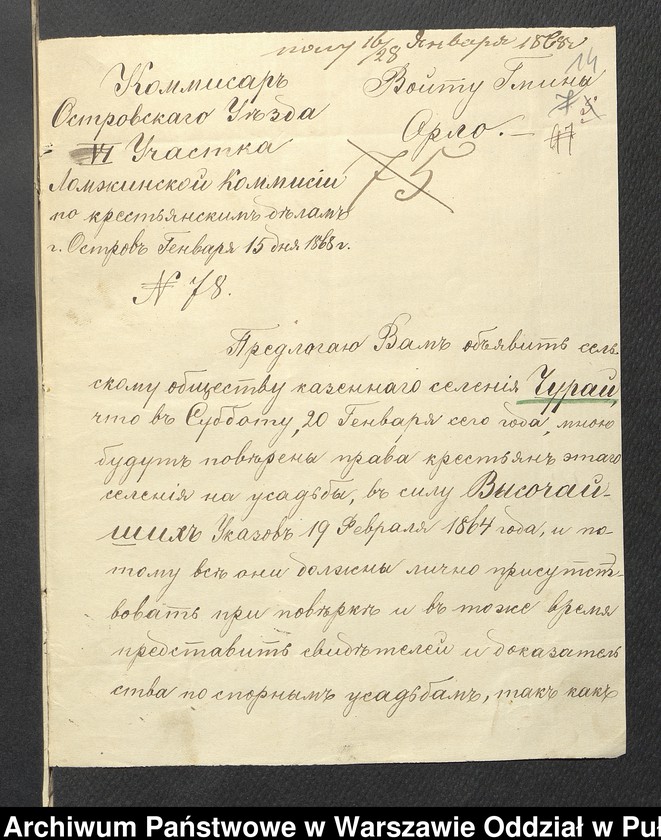 полу 16/28 Января 1868 г
14
Коммисаръ
Войту Гмина
Островскаго Уѣзда
7
Орло. —
VI Участка
75
Ломжинской Коммисіи
по крестьянскимъ дѣламъ
г. Островъ Генваря 15 дня 1868 г.
N 78.
Предлогаю Вамъ объявить сель-
скому обществу казеннаго селенія Чурай,
что въ Субботу, 20 Генваря сего года, мною
будутъ повѣрены права крестьянъ этаго
селенія на усадьбы, въ силу Высочай-
шихъ Указовъ 19 Февраля 1864 года, и по-
тому всѣ они должны лично присутст-
вовать при повѣркѣ и въ тоже время
представить свидѣтелей и доказатель
ства по спорнымъ усадьбамъ, такъ какъ
Archiwum Państwowe w Warszawie Oddział w Puł